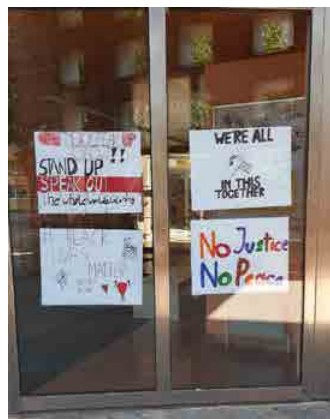 STAND UP !!
SPEAK OUT
The whole world
MATTER
WE'RE ALL
IN THIS
TOGETHER
No Justice
No Peace